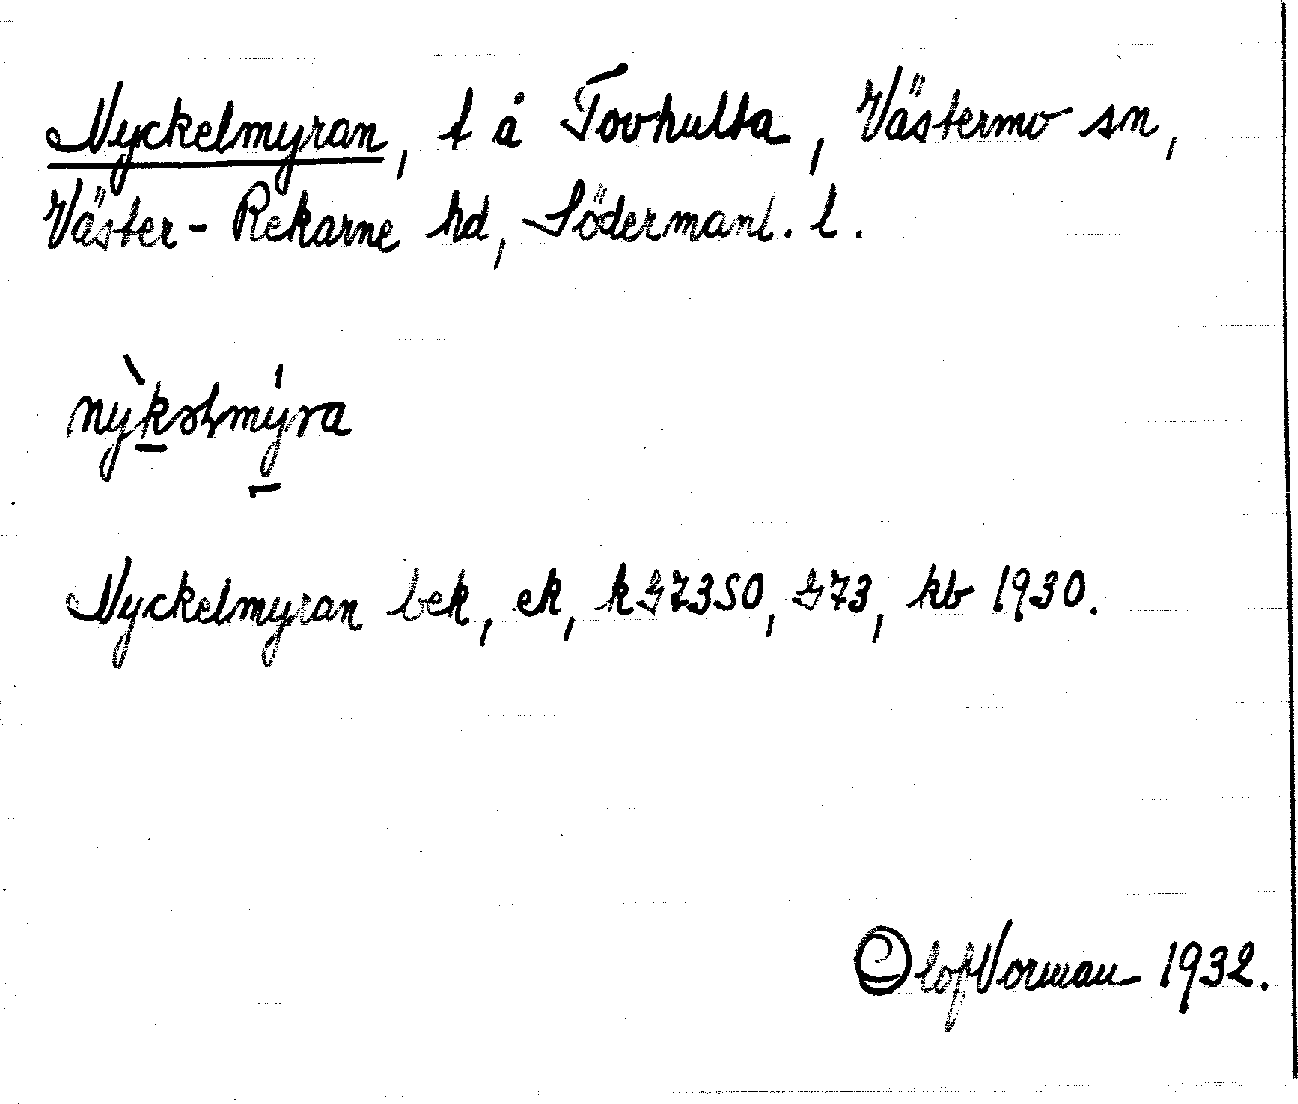 Nyckelmyran, t å Tovhulta, Västermo sn,
Väster-Rekarne hd, Södermanl. l.
Nyckelmyran bek, ek, k G7350, G73, kb 1930.
Olof Norman 1932.